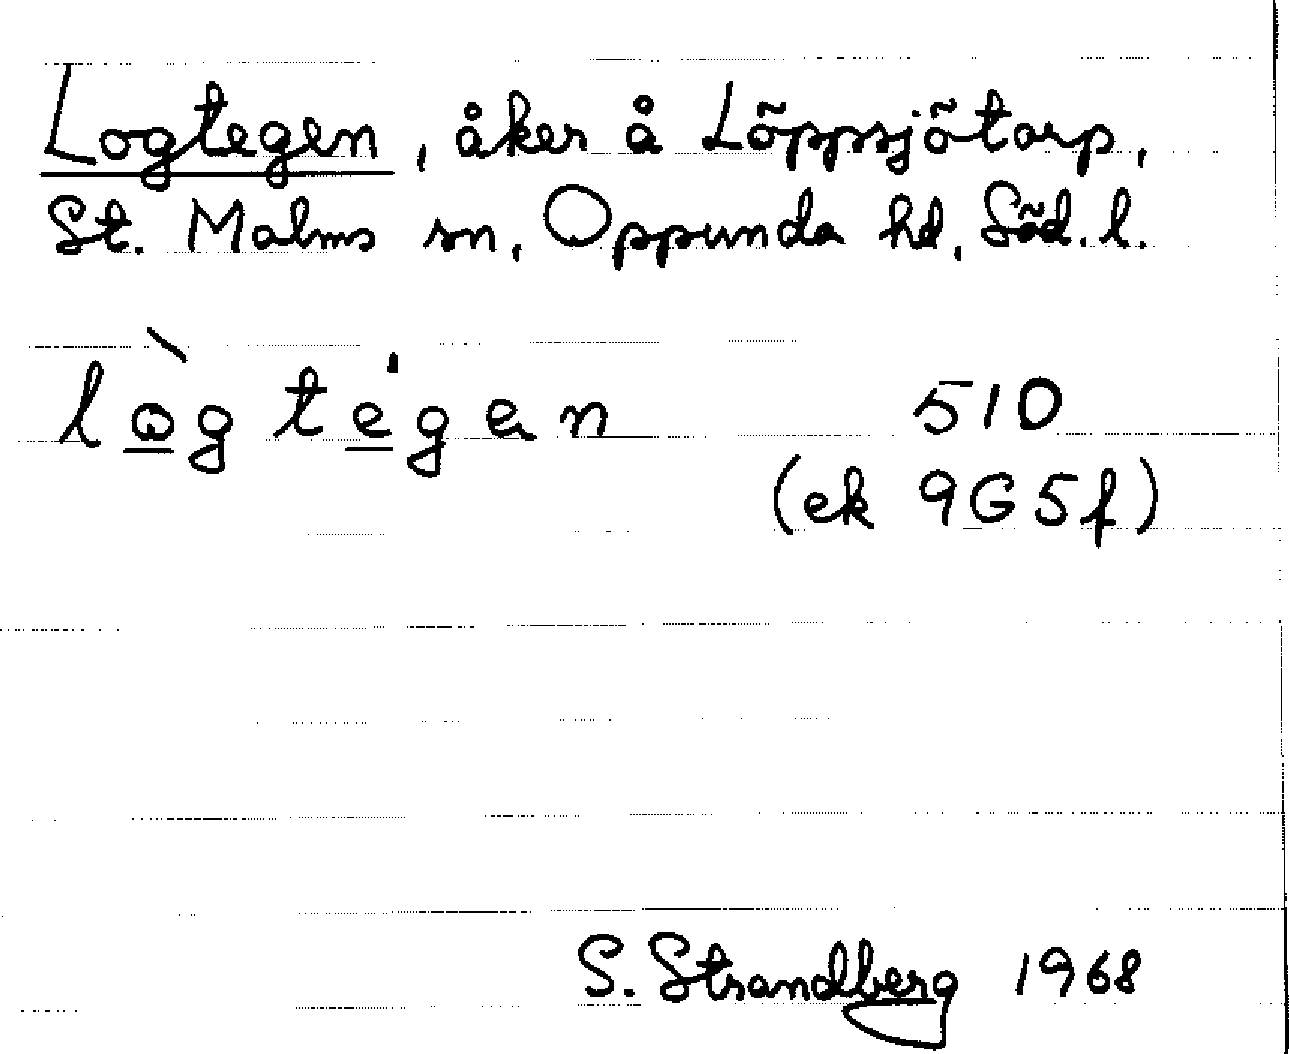 Logtegen, åker å Löppsjötorp,
St. Malms sn, Oppunda hd, Söd. l.
lò̲g té̲gen 510
(ek 9G5f)
S. Strandberg 1968